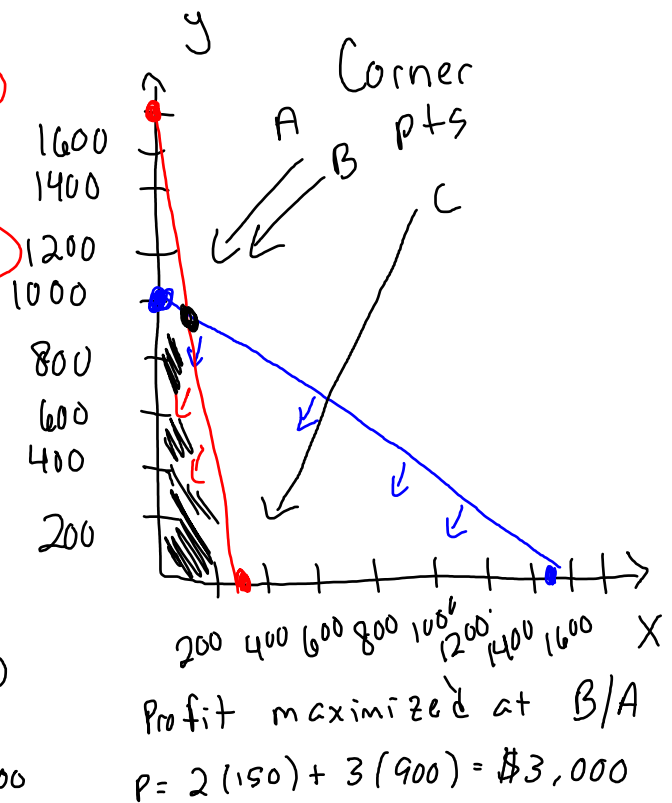 y
Corner
pts
A
B
C
1600
1400
1200
1000
800
600
400
200
200 400 600 800 1000 1200 1400 1600 X
Profit maximized at B/A
00
P = 2(150) + 3(900) = $3,000